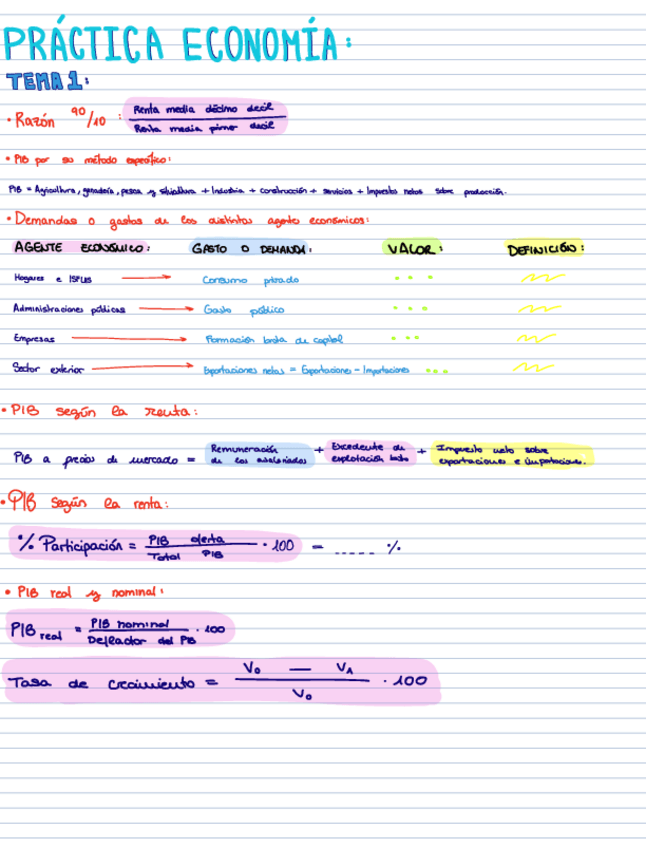 PRÁCTICA ECONOMÍA:
TEMA 1:
• Razón 90/10 : Renta media décimo decil
Renta media primer decil
• PIB por su método específico:
PIB = Agricultura, ganadería, pesca y silvicultura + Industria + construcción + servicios + Impuestos netos sobre producción.
• Demandas o gastos de los distintos agentes económicos:
AGENTE ECONÓMICO: GASTO O DEMANDA: VALOR: DEFINICIÓN:
Hogares e ISFLSH Consumo privado
Administraciones públicas Gasto público
Empresas Formación bruta de capital
Sector exterior Exportaciones netas = Exportaciones - Importaciones
• PIB según la renta:
PIB a precios de mercado = Remuneración de los asalariados + Excedente de explotación bruto + Impuesto neto sobre exportaciones e importaciones.
• PIB según la renta:
% Participación = PIB oferta
Total PIB
· 100 = _ _ _ _ _ %
• PIB real y nominal:
PIB real = PIB nominal
Deflactor del PIB
· 100
Tasa de crecimiento = V0 — V1
V0
· 100